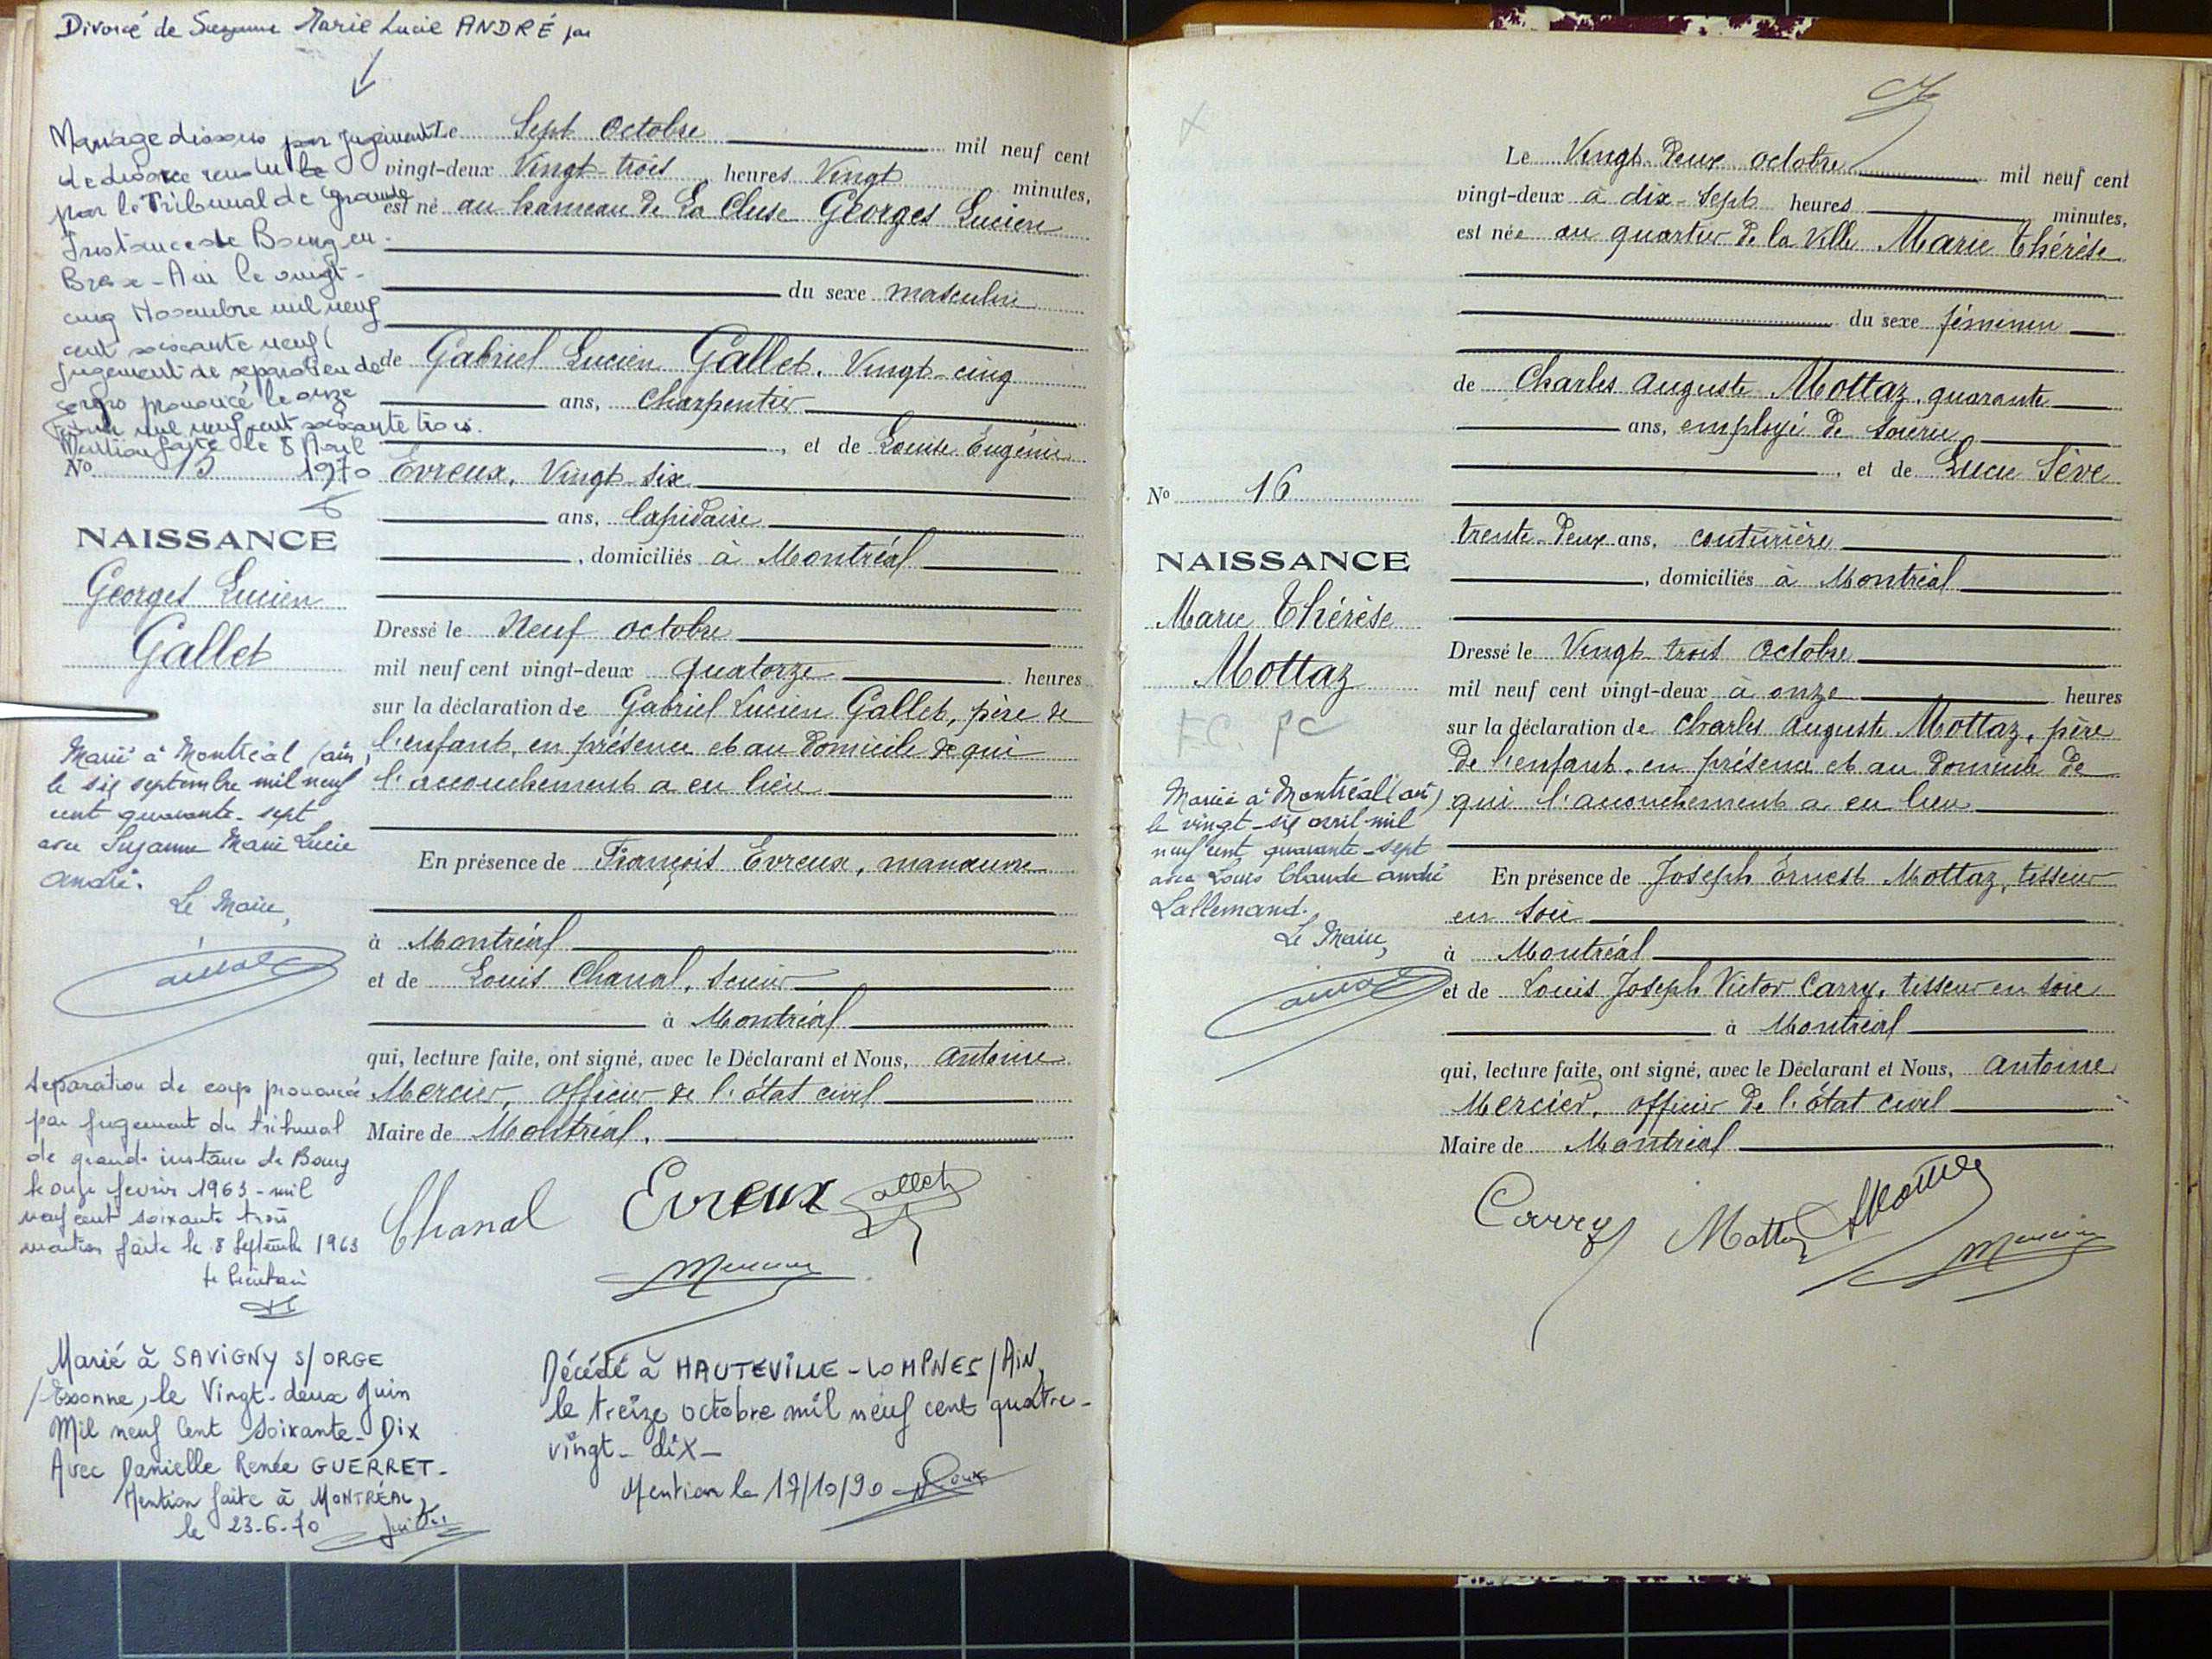 Divorcé de Suzanne Marie Lucie ANDRÉ par
Mariage dissous par jugement
de divorce rendu le
par le Tribunal de Grande
Instance de Bourg en
Bresse - Ain le vingt-
cinq Novembre mil neuf
cent soixante neuf (
jugement de séparation de
corps prononcé le onze
février mil neuf cent soixante trois.
Mention faite le 8 Avril
1970
No 15
NAISSANCE
Georges Lucien
Gallet
Marié à Montréal (ain)
le six septembre mil neuf
cent quarante-sept
avec Suzanne Marie Lucie
André.
Le Maire,
Séparation de corps prononcé
par jugement du tribunal
de grande instance de Bourg
le onze fevrier 1963 - mil
neuf cent soixante trois
mention faite le 8 Septembre 1963
Marié à SAVIGNY S/ ORGE
/Essonne, le Vingt-deux Juin
Mil neuf Cent Soixante-Dix
Avec Danielle Renée GUERRET-
Mention faite à MONTRÉAL,
le 23-6-70
Le Sept Octobre mil neuf cent
vingt-deux Vingt trois heures Vingt minutes,
est né au hameau de La Cluse Georges Lucien
du sexe masculin
de Gabriel Lucien Gallet, Vingt-cinq
ans, Charpentier
, et de Louise Eugénie
Evreux, Vingt-six
ans, lapidaire
, domiciliés à Montréal
Dressé le Neuf octobre
mil neuf cent vingt-deux quatorze heures
sur la déclaration de Gabriel Lucien Gallet, père de
l'enfant, en présence et au domicile de qui
l'accouchement a eu lieu
En présence de François Evreux, manœuvre
à Montréal
et de Louis Chanal, scieur
à Montréal
qui, lecture faite, ont signé, avec le Déclarant et Nous, Antoine
Mercier, Officier de l'état civil
Maire de Montréal.
Chanal Evreux Gallet
Mercier
Décédé à HAUTEVILLE-LOMPNES/AIN,
le treize octobre mil neuf cent quatre-
vingt-dix-
Mention le 17/10/90
No 16
NAISSANCE
Marie Thérèse
Mottaz
F.C. PC
Mariée à Montréal (ain)
le vingt-six avril mil
neuf cent quarante-sept
avec Louis Claude André
Lallemand.
Le Maire,
Le Vingt-Deux octobre mil neuf cent
vingt-deux à dix-sept heures minutes,
est née au quartier de la Ville Marie Thérèse
du sexe féminin
de Charles Auguste Mottaz, quarante
ans, employé de soierie
, et de Lucie Sève
trente-deux ans, couturière
, domiciliés à Montréal
Dressé le Vingt-trois Octobre
mil neuf cent vingt-deux à onze heures
sur la déclaration de Charles Auguste Mottaz, père
de l'enfant, en présence et au domicile de
qui l'accouchement a eu lieu
En présence de Joseph Ernest Mottaz, tisseur
en soie
à Montréal
et de Louis Joseph Victor Carry, tisseur en soie
à Montréal
qui, lecture faite, ont signé, avec le Déclarant et Nous, Antoine
Mercier, officier de l'état civil
Maire de Montréal
Carry Mottaz Mottaz
Mercier